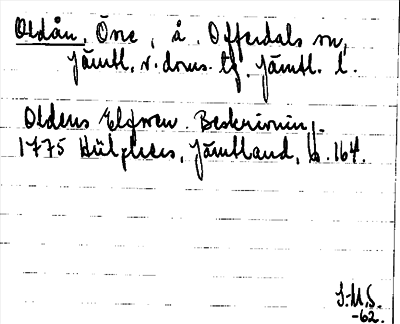 Oldån, Övre, å, Offerdals sn,
Jämtl. v. doms. tg. Jämtl. l.
Oldens Elfwen. Beskrivning
1775 Hülphers, Jämtland, s. 164.
J.M.S.
-62.